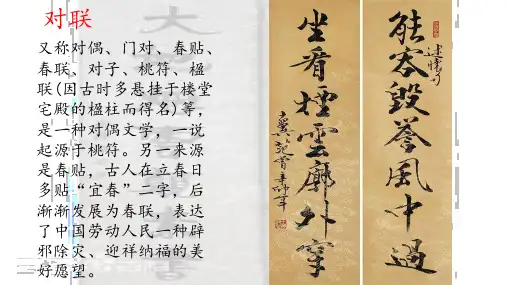 对联
又称对偶、门对、春贴、
春联、对子、桃符、楹
联(因古时多悬挂于楼堂
宅殿的楹柱而得名)等，
是一种对偶文学，一说
起源于桃符。另一来源
是春贴，古人在立春日
多贴“宜春”二字，后
渐渐发展为春联，表达
了中国劳动人民一种辟
邪除灾、迎祥纳福的美
好愿望。
能容毁誉风中过
坐看烟云廊外穿